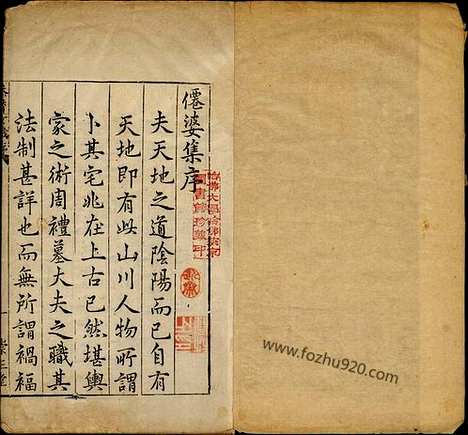 僊婆集序
夫天地之道陰陽而已自有
天地即有此山川人物所謂
卜其宅兆在上古已然堪輿
家之術周禮墓大夫之職其
法制甚詳也而無所謂禍福
www.fozhu920.com